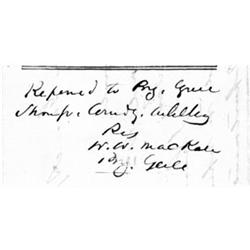 Referred to Brg. Genl
Thomps. Comdg. Artillery
Res
W. W. Mackall
Brg. Genl